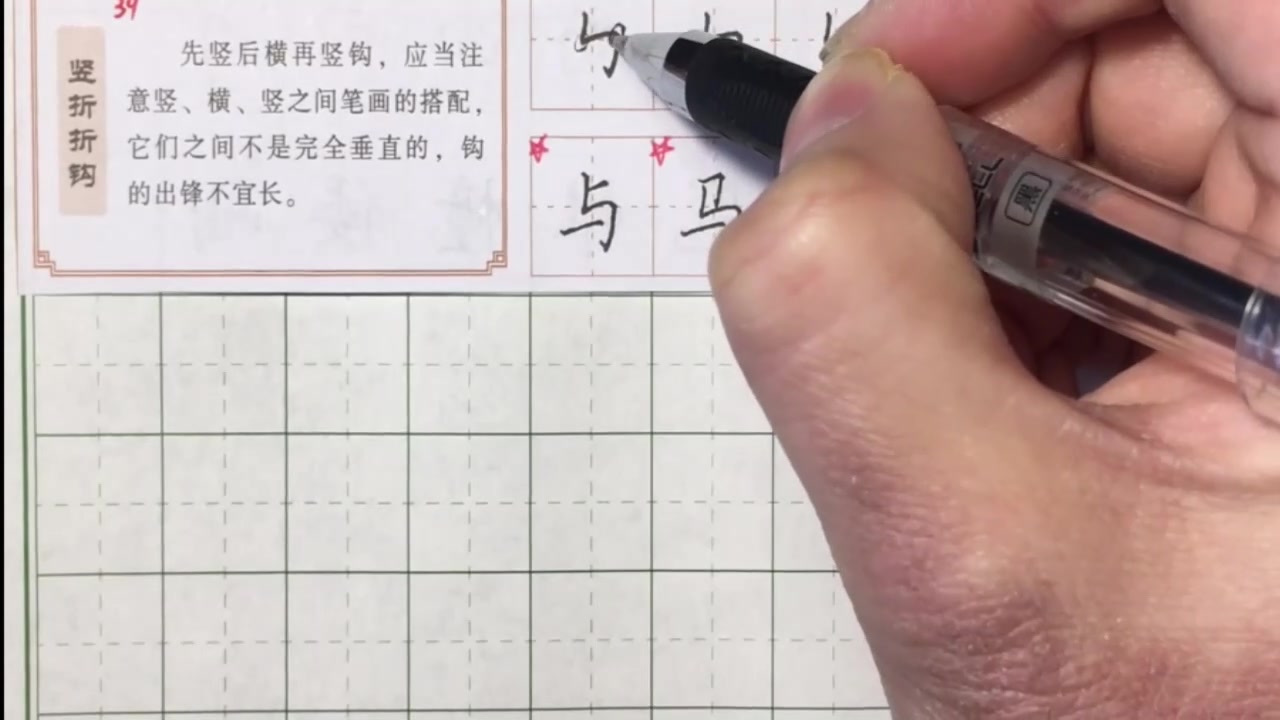 39
竖折折钩
先竖后横再竖钩，应当注
意竖、横、竖之间笔画的搭配，
它们之间不是完全垂直的，钩
的出锋不宜长。
与 马
黑